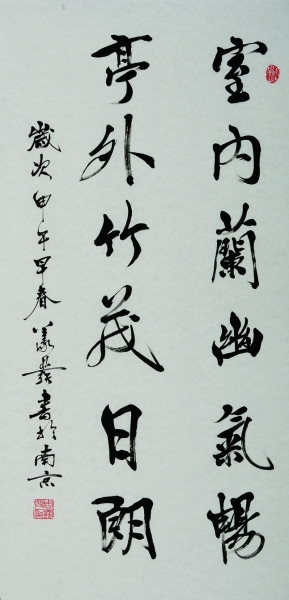 室内蘭幽氣暢
亭外竹茂日朗
歲次甲午早春
書於南京